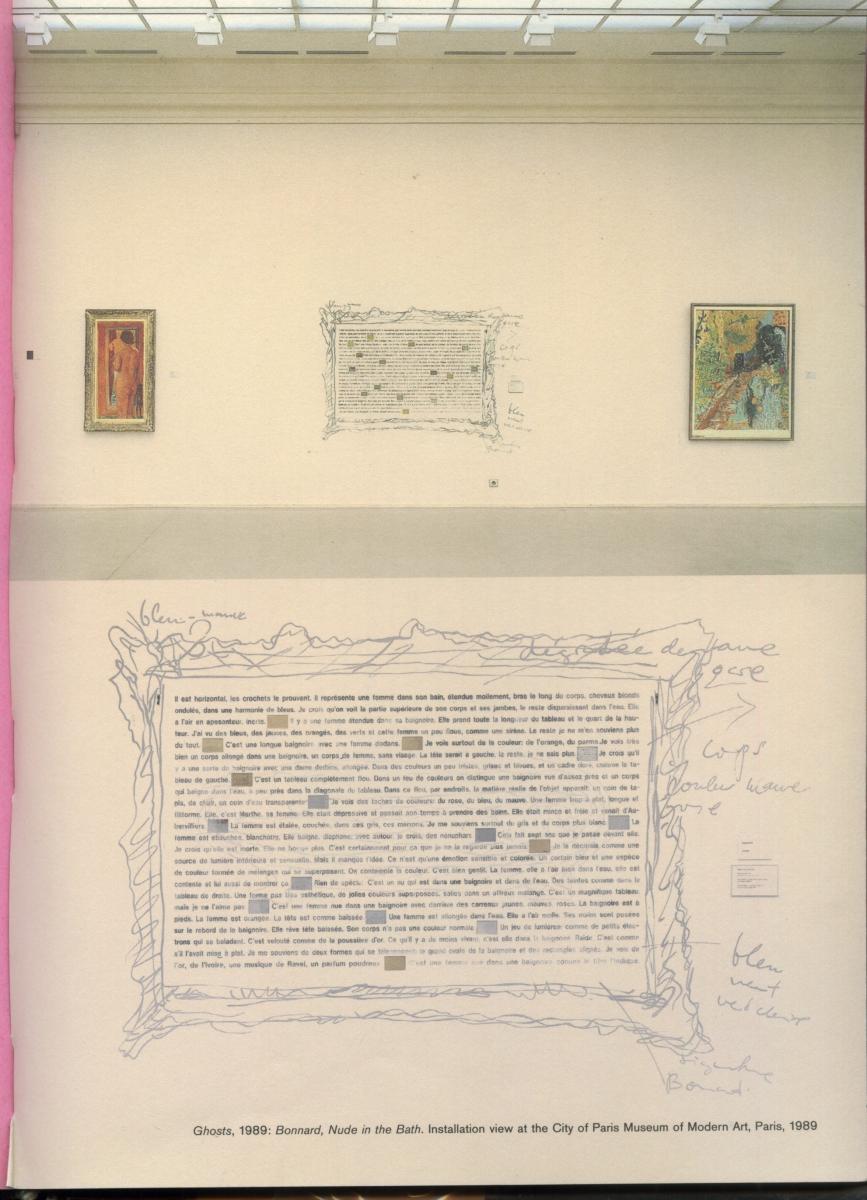 bleu-mauve
dégradée de jaune
ocre
Il est horizontal, les crochets le prouvent. Il représente une femme dans son bain, étendue mollement, bras le long du corps, cheveux blonds
ondulés, dans une harmonie de bleus. Je crois qu'on voit la partie supérieure de son corps et ses jambes, le reste disparaissant dans l'eau. Elle
a l'air en apesanteur, inerte. Il y a une femme étendue dans sa baignoire. Elle prend toute la longueur du tableau et le quart de la hau-
teur. J'ai vu des bleus, des jaunes, des orangés, des verts et cette femme un peu floue, comme une sirène. Le reste je ne m'en souviens plus
du tout. C'est une longue baignoire avec une femme dedans. Je vois surtout de la couleur: de l'orange, du parme. Je vois très
bien un corps allongé dans une baignoire, un corps de femme, sans visage. La tête serait à gauche, le reste, je ne sais plus. Je crois qu'il
y a une sorte de baignoire avec une dame dedans, allongée. Dans des couleurs un peu tristes, grises et bleues, et un cadre doré, comme le ta-
bleau de gauche. C'est un tableau complètement flou. Dans un feu de couleurs on distingue une baignoire vue d'assez près et un corps
qui baigne dans l'eau, à peu près dans la diagonale du tableau. Dans ce flou, par endroits, la matière réelle de l'objet apparaît: un coin de ta-
pis, de chair, un coin d'eau transparente. Je vois des taches de couleurs: du rose, du bleu, du mauve. Une femme trop à plat, longue et
filiforme. Elle, c'est Marthe, sa femme. Elle était dépressive et passait son temps à prendre des bains. Elle était mince et frêle et venait d'Au-
bervilliers. La femme est étalée, couchée, dans ces gris, ces marrons. Je me souviens surtout du gris et du corps plus blanc. La
femme est ébauchée, blanchâtre. Elle baigne, diaphane, avec autour, je crois, des nénuphars. Cela fait sept ans que je passe devant elle.
Je crois qu'elle est morte. Elle ne bouge plus. C'est certainement pour ça que je ne la regarde plus jamais. Je la décrirais comme une
source de lumière intérieure et sensuelle. Mais il manque l'idée. Ce n'est qu'une émotion sensitive et colorée. Un certain bleu et une espèce
de couleur formée de mélanges qui se superposent. On contemple la couleur. C'est bien gentil. La femme, elle a l'air bien dans l'eau, elle est
contente et lui aussi de montrer ça. Rien de spécial. C'est un nu qui est dans une baignoire et dans de l'eau. Des teintes comme dans le
tableau de droite. Une forme pas très esthétique, de jolies couleurs superposées, sales dans un affreux mélange. C'est un magnifique tableau
mais je ne l'aime pas. C'est une femme nue dans une baignoire avec derrière des carreaux jaunes, mauves, roses. La baignoire est à
pieds. La femme est orangée. La tête est comme baissée. Une femme est allongée dans l'eau. Elle a l'air molle. Ses mains sont posées
sur le rebord de la baignoire. Elle rêve tête baissée. Son corps n'a pas une couleur normale. Un jeu de lumières: comme de petits élec-
trons qui se baladent. C'est velouté comme de la poussière d'or. Ce qu'il y a de moins vivant, c'est elle dans la baignoire. Raide. C'est comme
s'il l'avait mise à plat. Je me souviens de deux formes qui se télescopent: le grand ovale de la baignoire et des rectangles alignés. Je vois de
l'or, de l'ivoire, une musique de Ravel, un parfum poudreux. C'est une femme nue dans une baignoire comme le titre l'indique.
corps
couleur mauve
rose
bleu
vert
signature
Bonnard
Ghosts, 1989: Bonnard, Nude in the Bath. Installation view at the City of Paris Museum of Modern Art, Paris, 1989